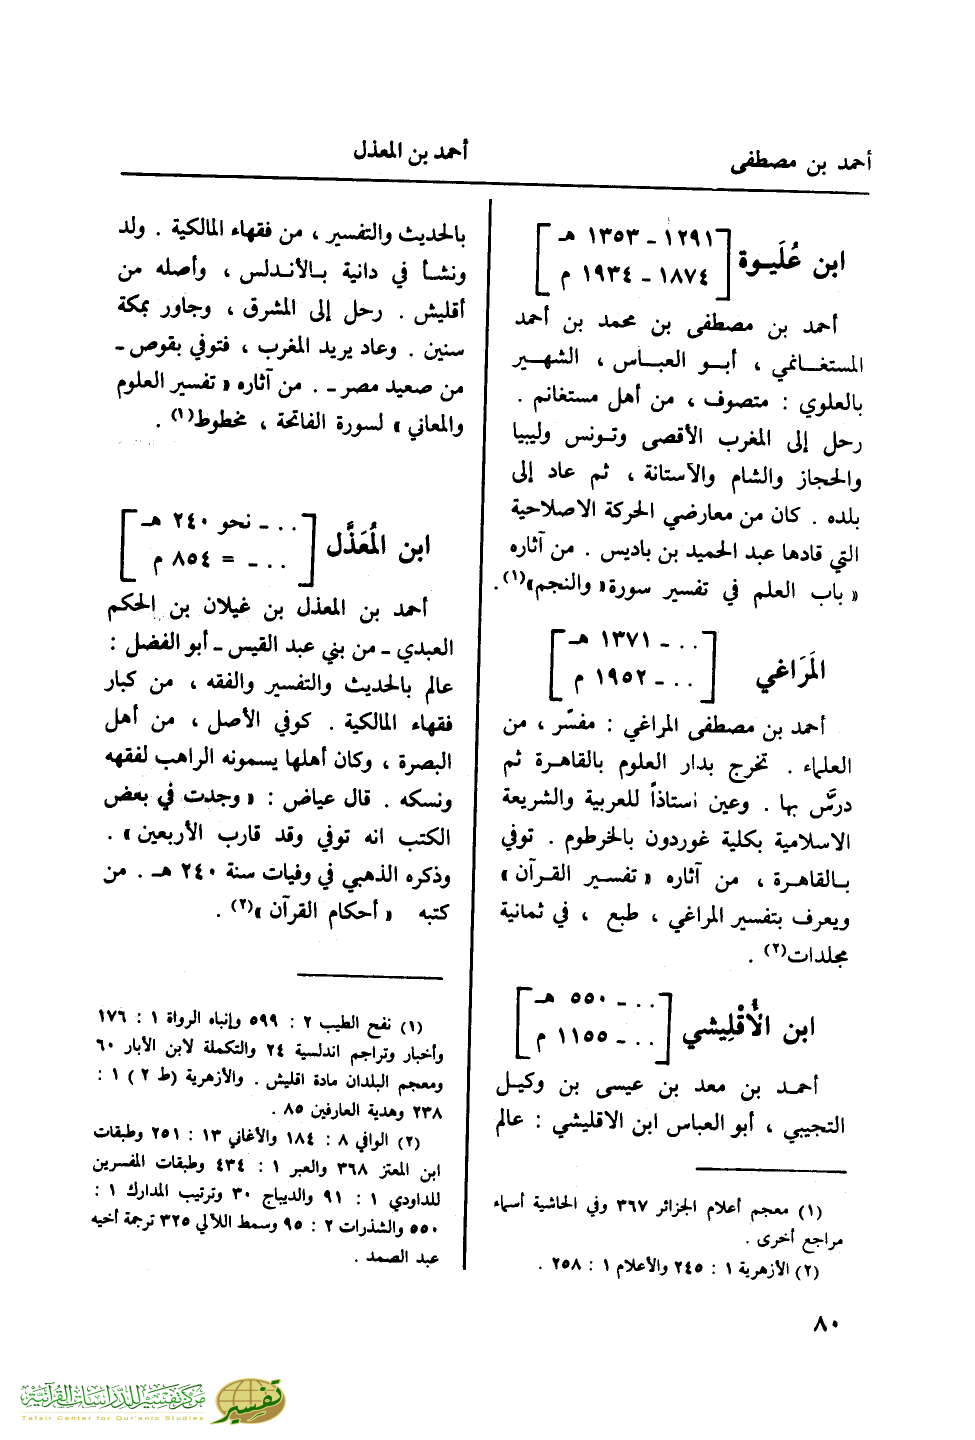 أحمد بن مصطفى
أحمد بن المعذل
ابن عُلَيـوة [ ١٢٩١ ـ ١٣٥٣ هـ
١٨٧٤ ـ ١٩٣٤ م ]
أحمد بن مصطفى بن محمد بن أحمد
المستغـانمي ، أبـو العبـاس ، الشهـير
بالعلوي : متصوف ، من أهل مستغانم .
رحل إلى المغرب الأقصى وتـونس وليبيا
والحجاز والشام والآستانة ، ثم عاد إلى
بلده . كان من معارضي الحركة الاصلاحية
التي قادها عبد الحميد بن باديس . من آثاره
« باب العلم في تفسير سورة « والنجم »(١) .
المَرَاغي [ . . ـ ١٣٧١ هـ
. . ـ ١٩٥٢ م ]
أحمد بن مصطفى المراغي : مفسّر ، من
العلماء . تخرج بدار العلوم بالقاهرة ثم
درسَّ بها . وعين استاذاً للعربية والشريعة
الاسلامية بكلية غوردون بالخرطوم . توفي
بـالقاهـرة ، من آثاره « تفسـير القـرآن »
ويعرف بتفسير المراغي ، طبع ، في ثمانية
مجلدات(٢) .
ابن الأُقْلِيشي [ . . ـ ٥٥٠ هـ
. . ـ ١١٥٥ م ]
أحمـد بن معد بن عيسى بن وكيـل
التجيبي ، أبو العباس ابن الاقليشي : عالم
(١) معجم أعلام الجزائر ٣٦٧ وفي الحاشية أسماء
مراجع أخرى .
(٢) الأزهرية ١ : ٢٤٥ والأعلام ١ : ٢٥٨ .
بالحديث والتفسير ، من فقهاء المالكية . ولد
ونشـأ في دانية بـالأنـدلس ، وأصله من
أقليش . رحل إلى المشرق ، وجاور بمكة
سنين . وعاد يريد المغرب ، فتوفي بقوص ـ
من صعيد مصر ـ . من آثاره « تفسير العلوم
والمعاني » لسورة الفاتحة ، مخطوط(١) .
ابن المُعَذَّل [ . . ـ نحو ٢٤٠ هـ
. . ـ = ٨٥٤ م ]
أحمد بن المعذل بن غيلان بن الحكم
العبدي ـ من بني عبد القيس ـ أبو الفضل :
عالم بالحديث والتفسير والفقه ، من كبار
فقهاء المالكية . كوفي الأصل ، من أهل
البصرة ، وكان أهلها يسمونه الراهب لفقهه
ونسكه . قال عياض : « وجدت في بعض
الكتب انه توفي وقد قارب الأربعين » .
وذكره الذهبي في وفيات سنة ٢٤٠ هـ . من
كتبه « أحكام القرآن »(٢) .
(١) نفح الطيب ٢ : ٥٩٩ وإنباه الرواة ١ : ١٧٦
وأخبار وتراجم اندلسية ٢٤ والتكملة لابن الأبار ٦٠
ومعجم البلدان مادة اقليش . والأزهرية (ط ٢ ) ١ :
٢٣٨ وهدية العارفين ٨٥ .
(٢) الوافي ٨ : ١٨٤ والأغاني ١٣ : ٢٥١ وطبقات
ابن المعتز ٣٦٨ والعبر ١ : ٤٣٤ وطبقات المفسرين
للداودي ١ : ٩١ والديباج ٣٠ وترتيب المدارك ١ :
٥٥٠ والشذرات ٢ : ٩٥ وسمط اللآلي ٣٢٥ ترجمة أخيه
عبد الصمد .
٨٠
مركز تفسير للدراسات القرآنية
Tafsir Center for Qur'anic Studies
تفسير